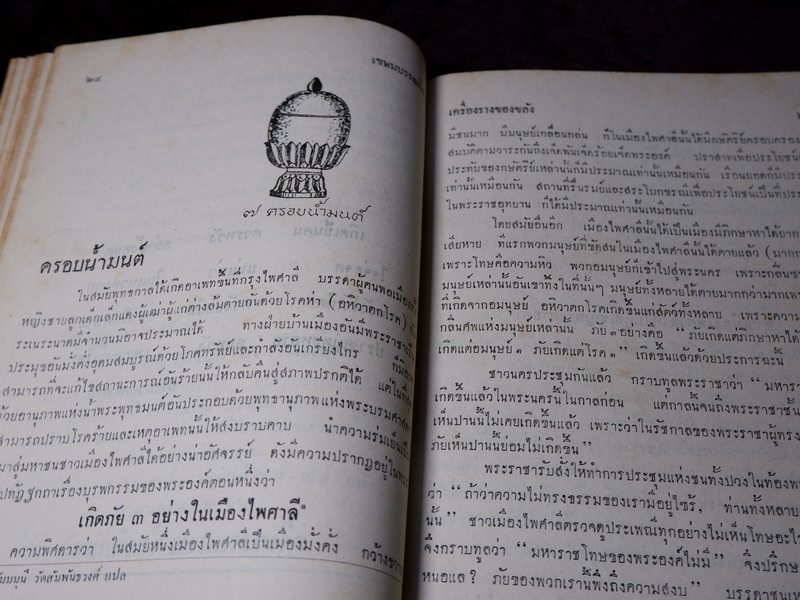 ๒๔
เขมบรรณ
๗ ครอบน้ำมนต์
ครอบน้ำมนต์
ในสมัยพุทธกาลได้เกิดอาเพทขึ้นที่กรุงไพศาลี บรรดาผู้คนพลเมือง
หญิงชายลูกเด็กเล็กแดงผู้เฒ่าผู้แก่ต่างล้มตายกันด้วยโรคห่า (อหิวาตกโรค)
ระเนระนาดมีจำนวนมิอาจประมาณได้ ทางฝ่ายบ้านเมืองอันมีพระราชา
ประมุขอันมั่งคั่งอุดมสมบูรณ์ด้วยโภคทรัพย์และกำลังอันเกรียงไกร
สามารถที่จะแก้ไขสถานะการณ์อันร้ายนั้นให้กลับคืนสู่สภาพปรกติได้ แต่ในที่สุด
ด้วยอานุภาพแห่งน้ำพระพุทธมนต์อันประกอบด้วยพุทธานุภาพแห่งพระบรมศาส
สามารถปราบโรคร้ายและเหตุอาเพทนั้นให้สงบราบคาบ นำความร่มเย็น
มาสู่มหาชนชาวเมืองไพศาลีได้อย่างน่าอัศจรรย์ ดังมีความปรากฏอยู่ใน
ปทัฏฐกถาเรื่องบุรพกรรมของพระองค์ตอนหนึ่งว่า
เกิดภัย ๓ อย่างในเมืองไพศาลี
ความพิศดารว่า ในสมัยหนึ่งเมืองไพศาลีเป็นเมืองมั่งคั่ง กว้างขวา
วัดสัมพันธวงศ์ แปล
เครื่องรางของขลัง
มีชนมาก มีมนุษย์เกลื่อนกล่น ก็ในเมืองไพศาลีนั้นได้มีกษัตริย์ครอบครอง
สมบัติตามวาระกันถึงเจ็ดพันเจ็ดร้อยเจ็ดพระองค์ ปราสาทเพื่อประโยชน์
ประทับของกษัตริย์เหล่านั้นก็มีประมาณเท่านั้นเหมือนกัน เรือนยอดก็มีประ
เท่านั้นเหมือนกัน สถานที่รื่นรมย์และสระโบกขรณีเพื่อประโยชน์เป็นที่
ในพระราชอุทยาน ก็ได้มีประมาณเท่านั้นเหมือนกัน
โดยสมัยอื่นอีก เมืองไพศาลีนั้นได้เป็นเมืองมีภิกษาหาได้ยาก
เสียหาย ที่แรกพวกมนุษย์ที่ขัดสนในเมืองไพศาลีนั้นได้ตายแล้ว (มาก
เพราะโทษคือความหิว พวกอมนุษย์ก็เข้าไปสู่พระนคร เพราะกลิ่น
มนุษย์เหล่านั้นอันเขาทิ้งในที่นั้นๆ มนุษย์ทั้งหลายได้ตายมากกว่ามาก
ที่เกิดจากอมนุษย์ อหิวาตกโรคเกิดขึ้นแก่สัตว์ทั้งหลาย เพราะความ
กลิ่นศพแห่งมนุษย์เหล่านั้น ภัย ๓ อย่างคือ “ ภัยเกิดแต่ภิกษาหาได้
เกิดแต่อมนุษย์ ๑ ภัยเกิดแต่โรค ๑ ” เกิดขึ้นแล้วด้วยประการฉะนี้
ชาวนครประชุมกันแล้ว กราบทูลพระราชาว่า “ มหารา
เกิดขึ้นแล้วในพระนครนี้ในกาลก่อน แต่กาลนี้จนถึงพระราชาชั่ว
เห็นปานนี้ไม่เคยเกิดขึ้นแล้ว เพราะว่าในรัชกาลของพระราชาผู้ทรง
ภัยเห็นปานนี้ย่อมไม่เกิดขึ้น ”
พระราชารับสั่งให้ทำการประชุมแห่งชนทั้งปวงในท้องพ
ว่า “ ถ้าว่าความไม่ทรงธรรมของเรามีอยู่ไซร้, ท่านทั้งหลาย
นั้น ” ชาวเมืองไพศาลีตรวจดูประเพณีทุกอย่างไม่เห็นโทษอะไร
จึงกราบทูลว่า “ มหาราชโทษของพระองค์ไม่มี ” จึงปรึก
หนอแล ? ภัยของพวกเรานี้พึงถึงความสงบ ” บรรดาชนเห